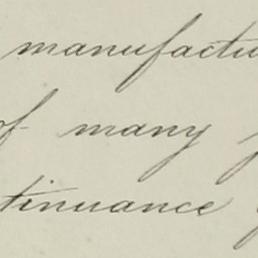 manufactu
of many
tinuance